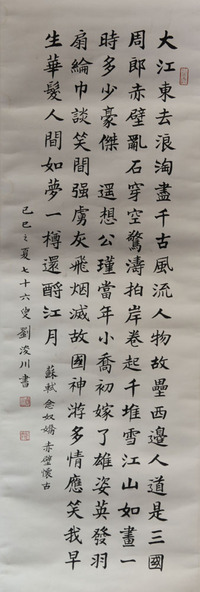 大江東去浪淘盡千古風流人物故壘西邊人道是三國
周郎赤壁亂石穿空驚濤拍岸卷起千堆雪江山如畫一
時多少豪傑 遥想公瑾當年小喬初嫁了雄姿英發羽
扇綸巾談笑間强虜灰飛烟滅故國神游多情應笑我早
生華髮人間如夢一樽還酹江月
蘇軾 念奴嬌 赤壁懷古
己巳之夏七十六叟劉浚川書